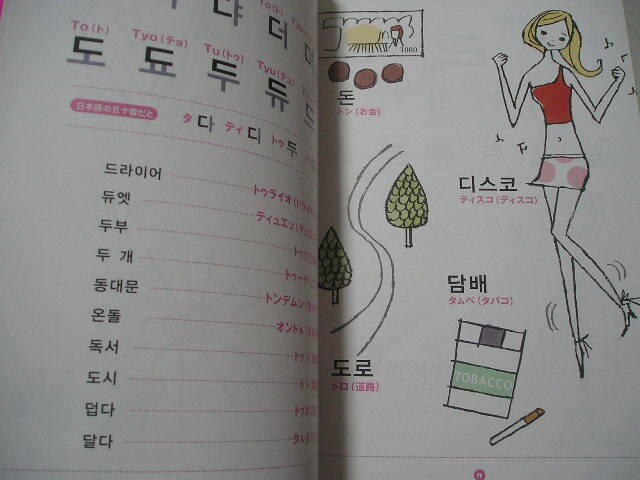 To(ト)
Tyo(テョ) Tu(トゥ) Tyu(テュ)
도 됴 두 듀 드
日本語の五十音だと
タ 다 ティ 디 トゥ 두
드라이어 トゥライオ(ドライ
듀엣 ティュエッ(デュエ
두부 トゥブ
두 개 トゥーゲ
동대문 トンデムン
온돌 オンドル
독서 トクソ
도시 トシ
덥다 トプタ
달다 タルダ
1000
돈
トン(お金)
디스코
ティスコ(ディスコ)
담배
タムベ(タバコ)
TOBACCO
도로
トロ(道路)